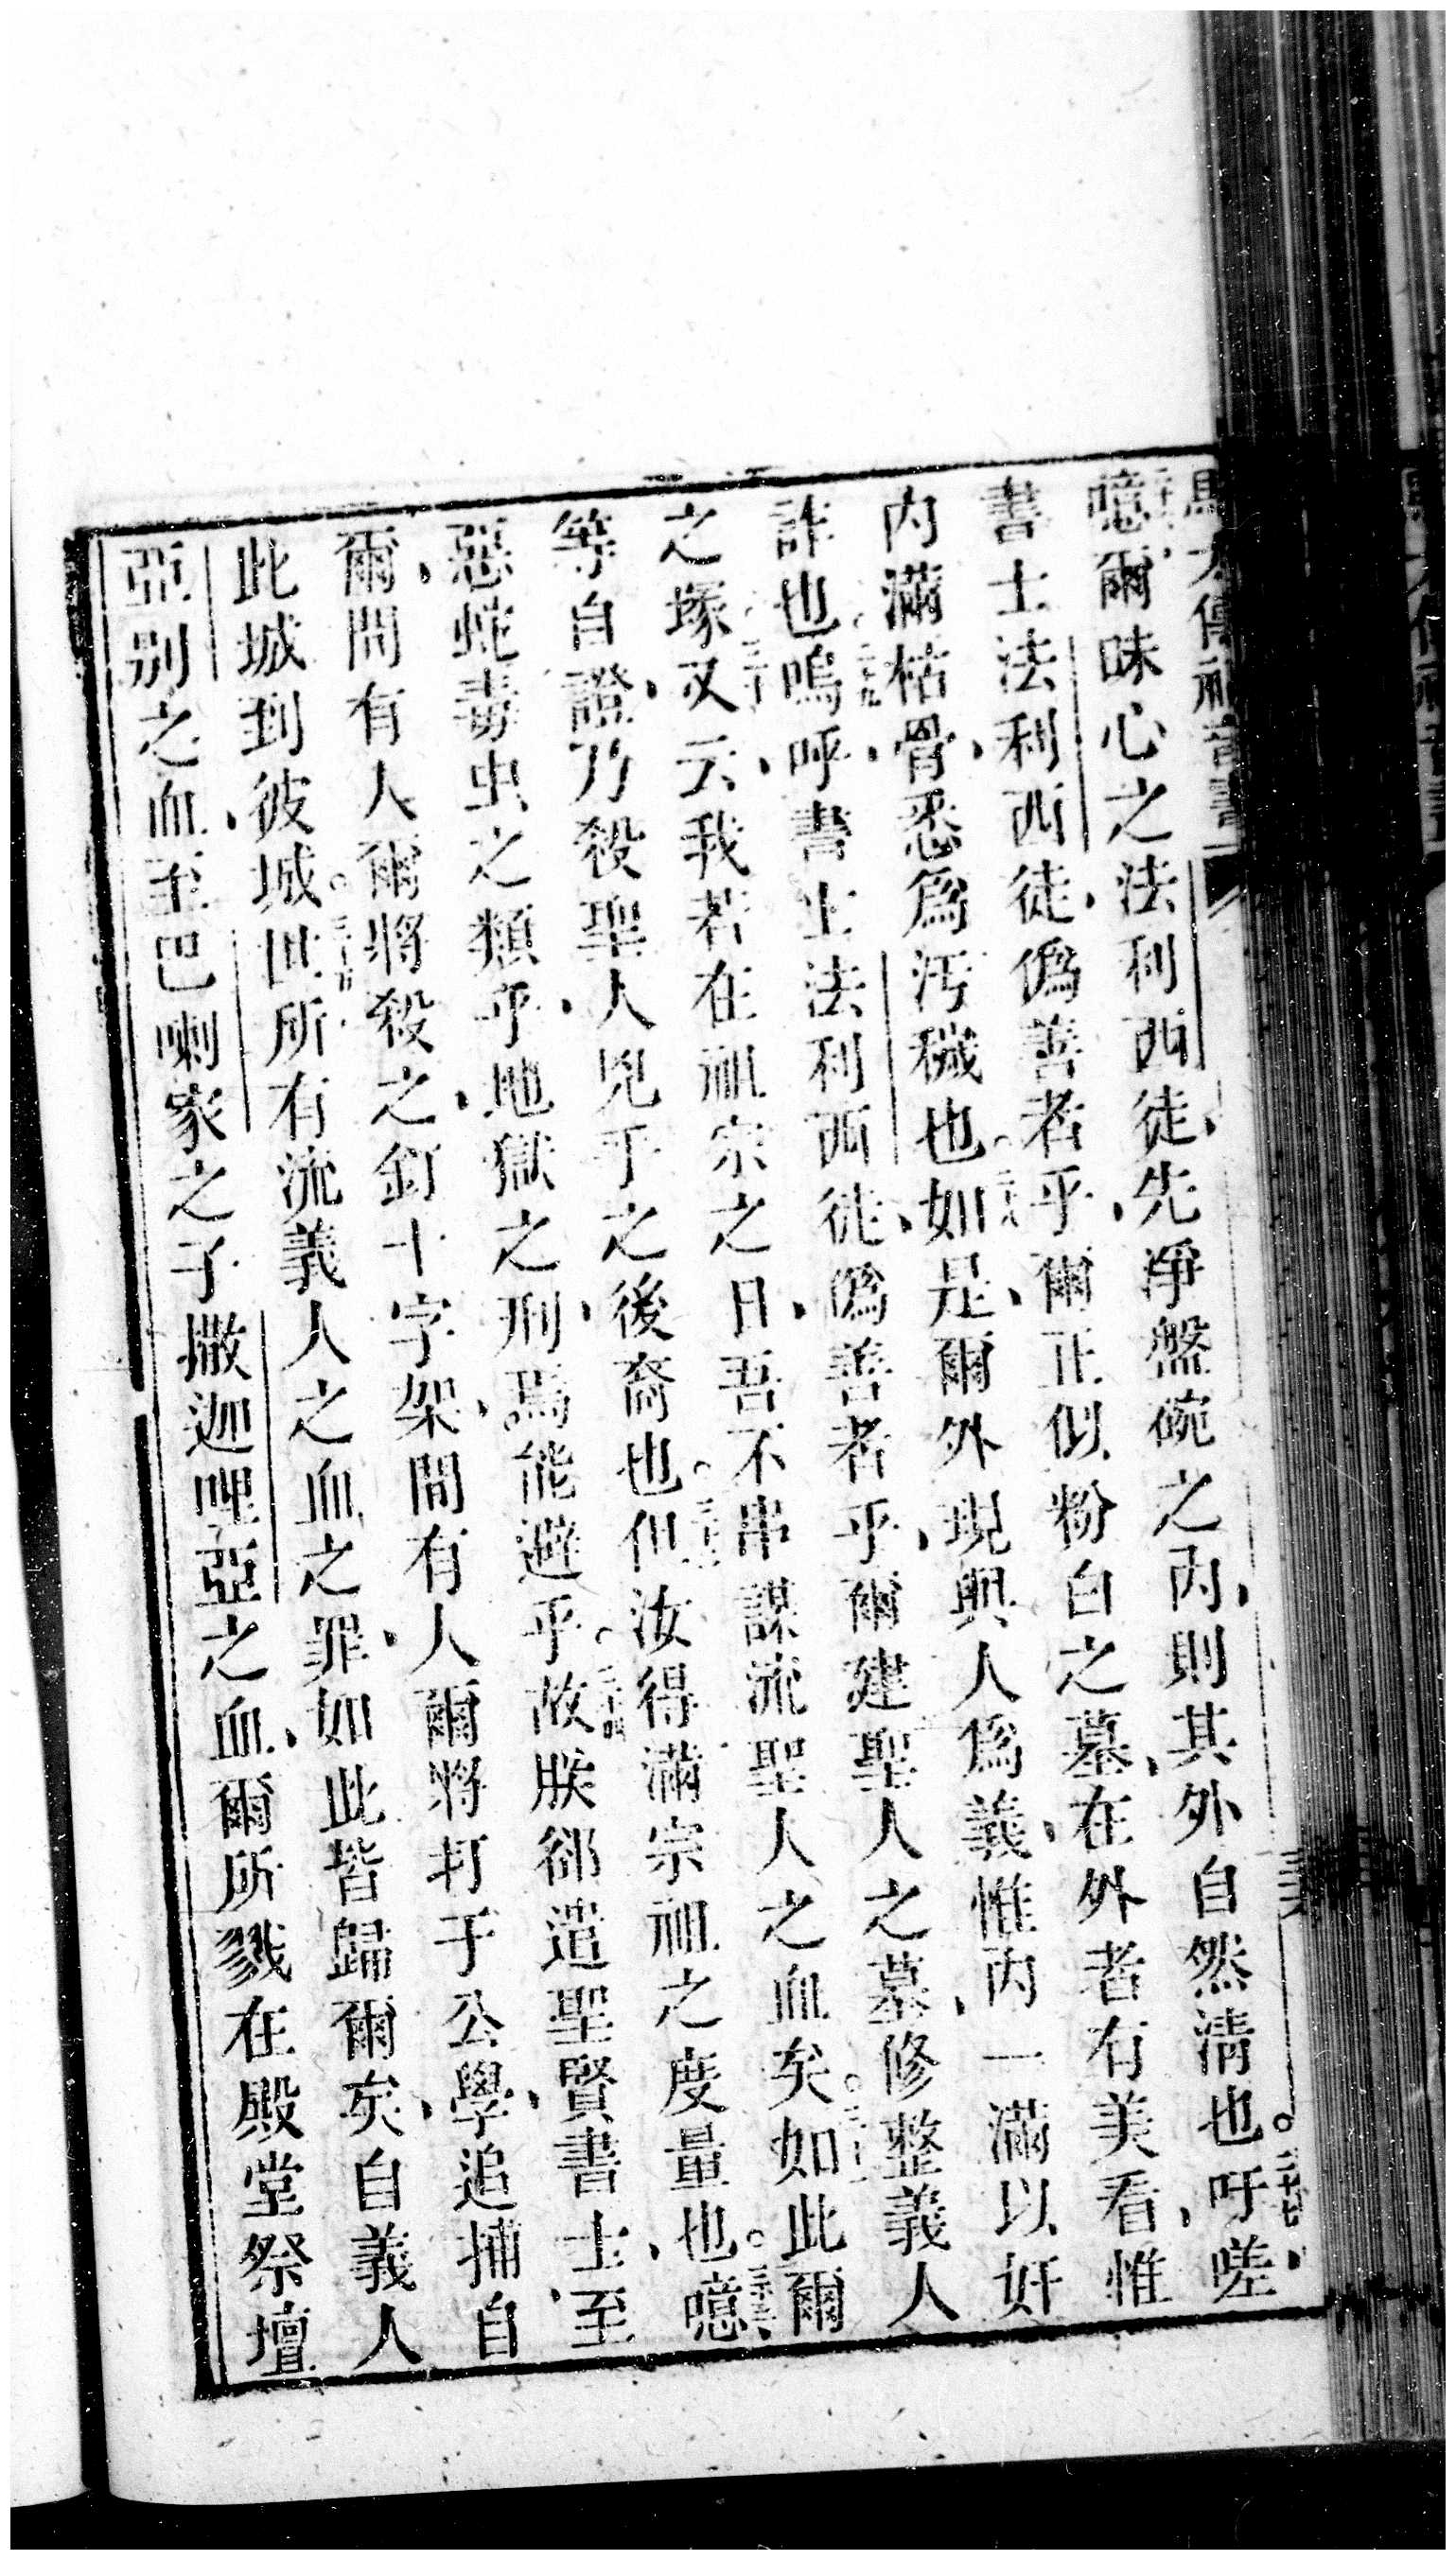 噫爾昧心之法利西徒、先淨盤碗之內、則其外自然清也。吁嗟、
書士法利西徒、偽善者乎、爾正似粉白之墓、在外者有美看、惟
內滿枯骨、悉為污穢也。如是、爾外現與人為義、惟內一滿以奸
詐也。嗚呼、書士法利西徒、偽善者乎、爾建聖人之墓、修整義人
之塚、又云、我若在祖宗之日、吾不串謀流聖人之血矣。如此爾
等自證、乃殺聖人兇手之後裔也。但汝得滿宗祖之度量也。噫、
惡蛇毒虫之類乎、地獄之刑、焉能避乎。故朕卻遣聖賢書士、至
爾、間有人爾將殺之、釘十字架、間有人爾將打于公學、追捕自
此城到彼城。世所有流義人之血之罪、如此皆歸爾矣、自義人
亞別之血、至巴喇家之子撒迦哩亞之血、爾所戮在殿堂祭壇